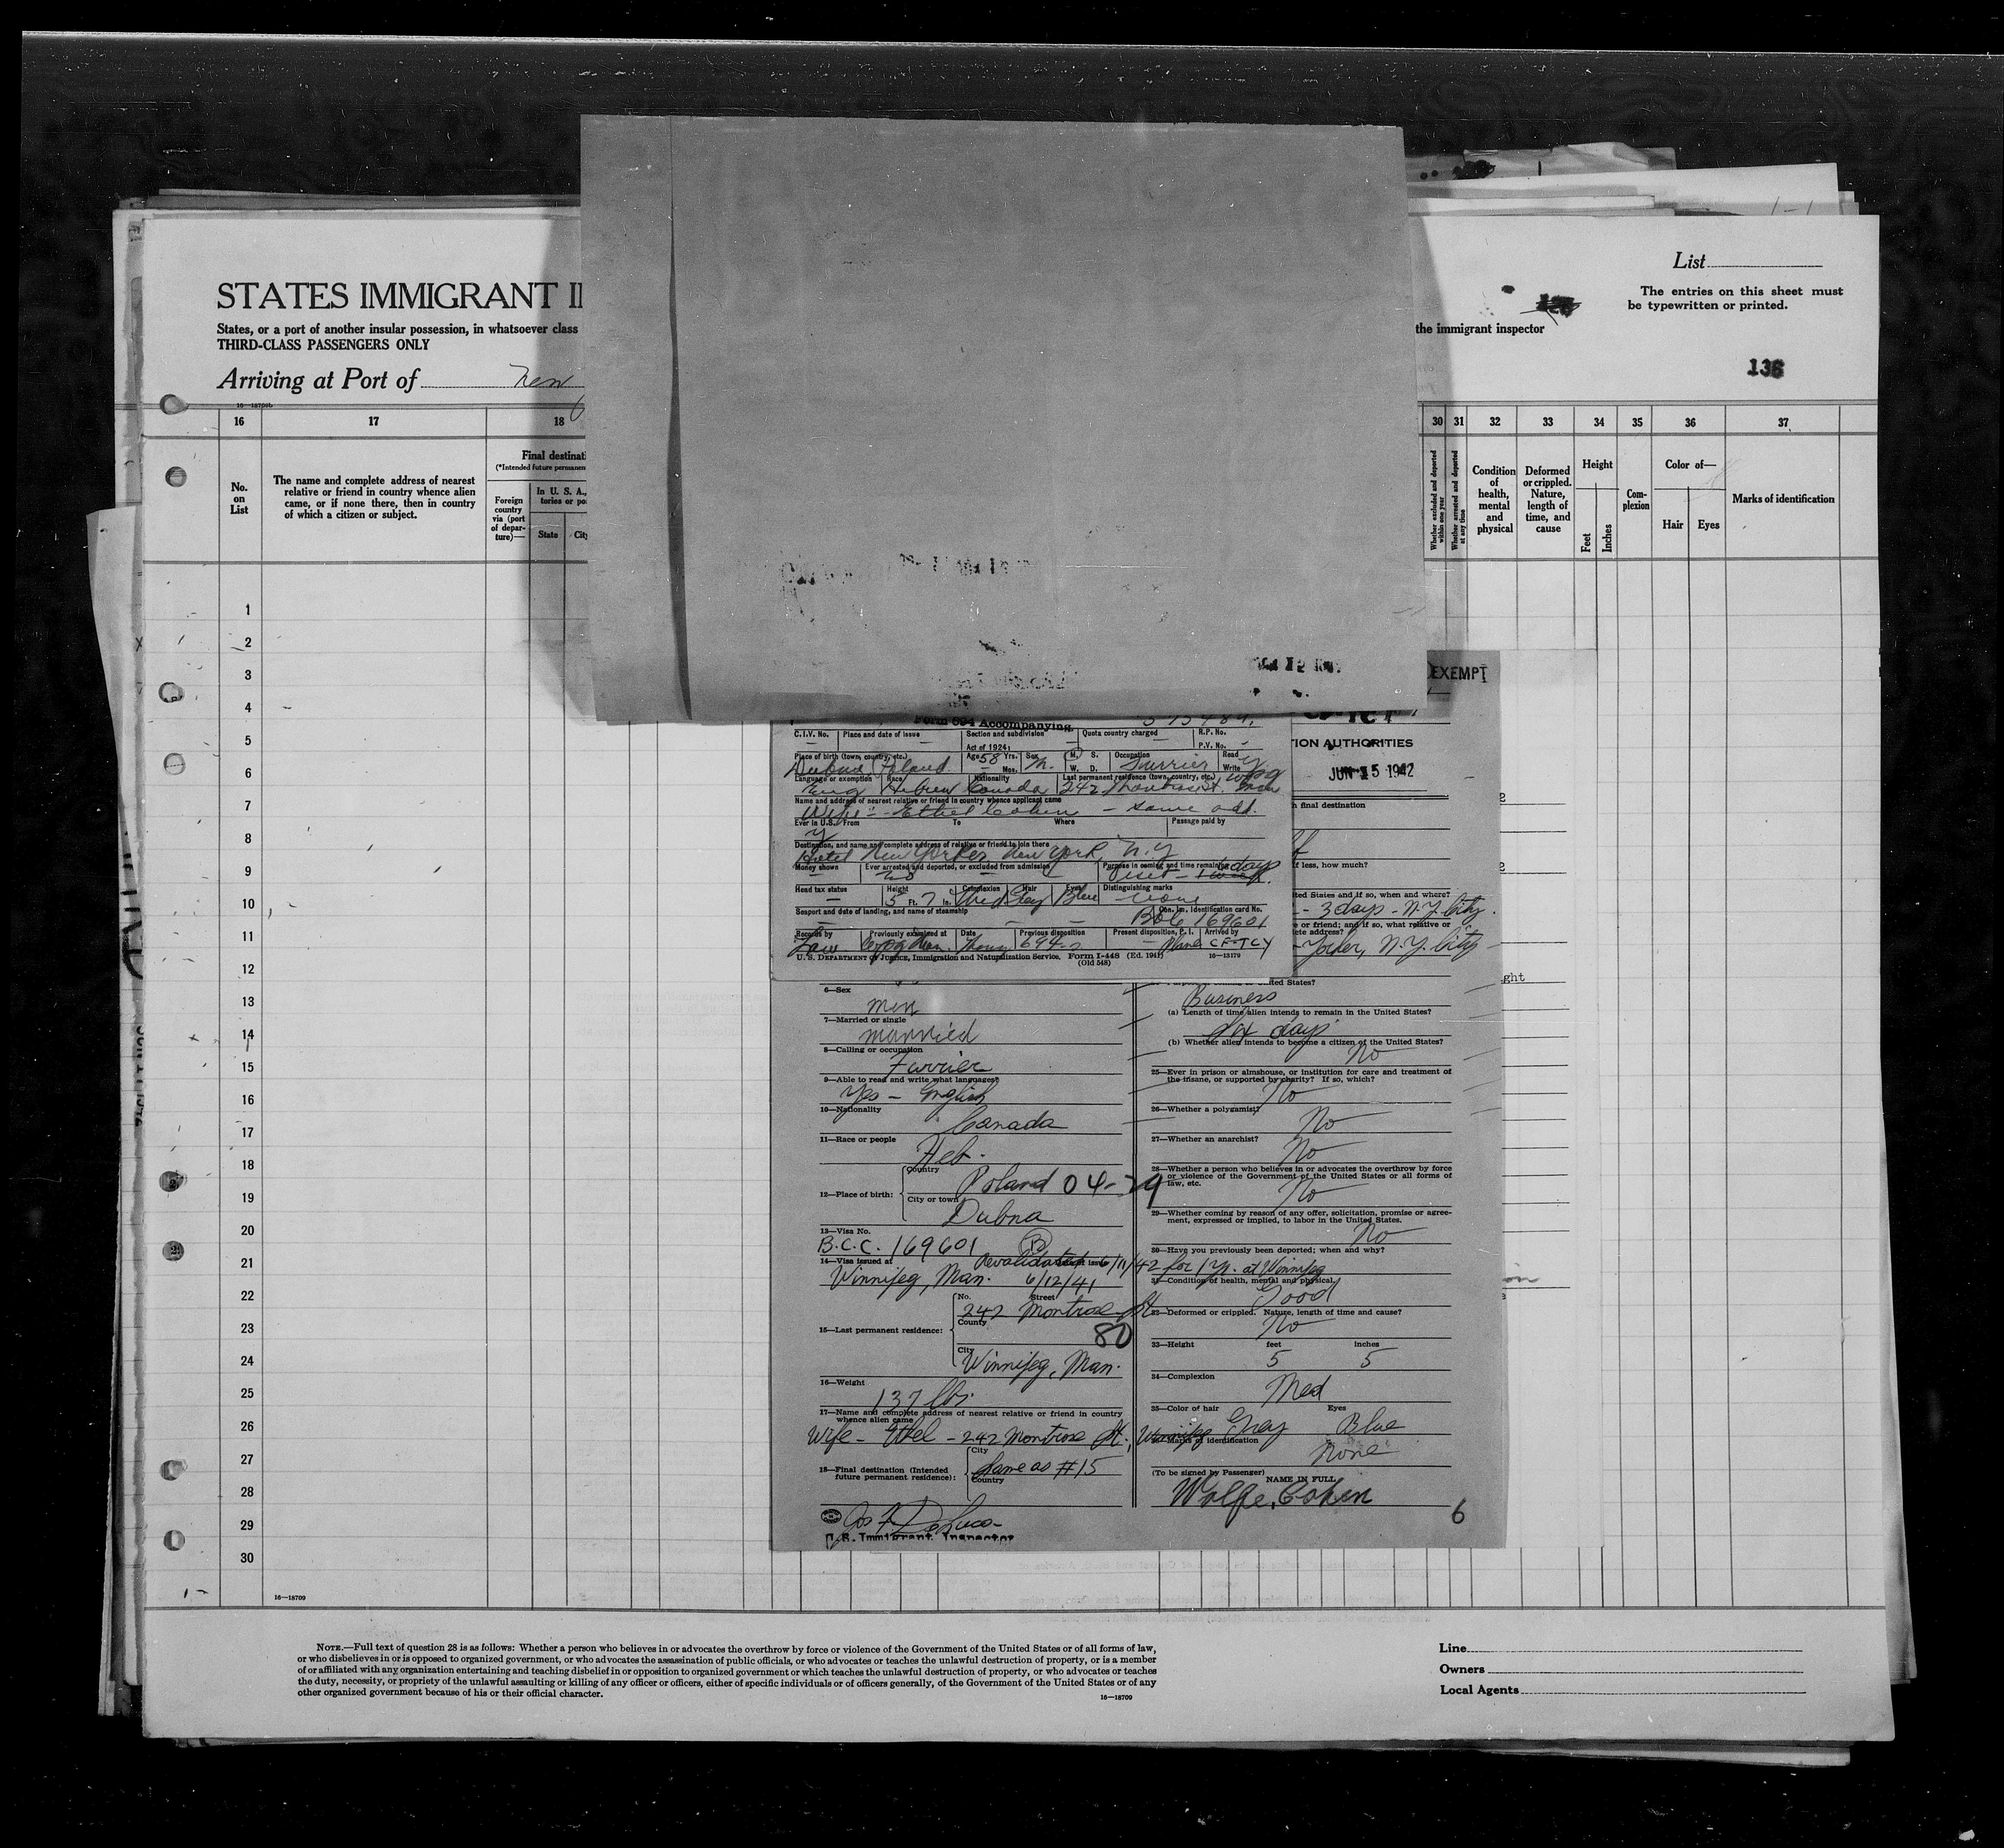 STATES IMMIGRANT
List
The entries on this sheet must
be typewritten or printed.
States, or a port of another insular possession, in whatsoever class
the immigrant inspector
THIRD-CLASS PASSENGERS ONLY
136
Arriving at Port of New
16 17 18 30 31 32 33 34 35 36 37
No.
on
List
The name and complete address of nearest
relative or friend in country whence alien
came, or if none there, then in country
of which a citizen or subject.
Foreign
country
via (port
of depar-
ture)—
State
Whether excluded and deported
within one year
Whether arrested and deported
at any time
Condition
of
health,
mental
and
physical
Deformed
or crippled.
Nature,
length of
time, and
cause
Height
Feet
Inches
Com-
plexion
Color of—
Hair Eyes
Marks of identification
1
2
3
4
5
6
7
8
9
10
11
12
13
14
15
16
17
18
19
20
21
22
23
24
25
26
27
28
29
30
16—18709
EXEMPT
ION AUTHORITIES
JUN 15 1942
Form 594 Accompanying
C.I.V. No. Place and date of issue Section and subdivision Quota country charged R.P. No.
Act of 1924: P.V. No.
Place of birth (town, country, etc.) Age 58 Yrs. Sex M. M. S. Occupation Read
Poland Mos. W. D. Furrier Write
Language or exemption Race Nationality Last permanent residence (town, country, etc.)
Eng Hebrew Canada 242
Name and address of nearest relative or friend in country whence applicant came
Wife - Ethel Cohen - same add.
Ever in U.S. From To Where Passage paid by
y
Destination, and name and complete address of relative or friend to join there
Hotel New Yorker New York, N.Y.
Money shown Ever arrested and deported, or excluded from admission Purpose in coming and time remaining
no Visit - 6 days
Head tax status Height Complexion Hair Eyes Distinguishing marks
5 Ft. 7 In. Med Grey Blue none
Seaport and date of landing, and name of steamship Con. Im. Identification card No.
169601
Records by Previously examined at Date Previous disposition Present disposition, P. I. Arrived by
Plane CF-TCY
U. S. DEPARTMENT OF JUSTICE, Immigration and Naturalization Service. Form I-448 (Ed. 1941) 16—13179
(Old 548)
final destination
f less, how much?
ted States and if so, when and where?
- 3 days - N.Y. City.
e or friend; and if so, what relative or
ete address?
Yorker, N.Y. City
6—Sex
Men
7—Married or single
Married
8—Calling or occupation
Furrier
9—Able to read and write what languages?
Yes - English
10—Nationality
Canada
11—Race or people
Heb.
12—Place of birth:
Country
Poland 04-29
City or town
Dubna
13—Visa No.
B.C.C. 169601 B
14—Visa issued at
Revalidated 6/11/42 for 1 yr. at Winnipeg
Winnipeg, Man. 6/12/41
15—Last permanent residence:
No. Street
242 Montrose St
County
80
City
Winnipeg, Man.
16—Weight
137 lbs.
17—Name and complete address of nearest relative or friend in country
whence alien came
Wife - Ethel - 242 Montrose St., Winnipeg
18—Final destination (Intended
future permanent residence):
City
Same as #15
Country
U.S. Immigrant Inspector
ted States?
Business
(a) Length of time alien intends to remain in the United States?
Six days
(b) Whether alien intends to become a citizen of the United States?
No
25—Ever in prison or almshouse, or institution for care and treatment of
the insane, or supported by charity? If so, which?
No
26—Whether a polygamist?
No
27—Whether an anarchist?
No
28—Whether a person who believes in or advocates the overthrow by force
or violence of the Government of the United States or all forms of
law, etc.
No
29—Whether coming by reason of any offer, solicitation, promise or agree-
ment, expressed or implied, to labor in the United States.
No
30—Have you previously been deported; when and why?
31—Condition of health, mental and physical.
Good
32—Deformed or crippled. Nature, length of time and cause?
No
33—Height feet inches
5 5
34—Complexion
Med
35—Color of hair Eyes
Grey Blue
36—Marks of identification
None
(To be signed by Passenger) NAME IN FULL
Wolfe, Cohen
6
NOTE.—Full text of question 28 is as follows: Whether a person who believes in or advocates the overthrow by force or violence of the Government of the United States or of all forms of law,
or who disbelieves in or is opposed to organized government, or who advocates the assassination of public officials, or who advocates or teaches the unlawful destruction of property, or is a member
of or affiliated with any organization entertaining and teaching disbelief in or opposition to organized government or which teaches the unlawful destruction of property, or who advocates or teaches
the duty, necessity, or propriety of the unlawful assaulting or killing of any officer or officers, either of specific individuals or of officers generally, of the Government of the United States or of any
other organized government because of his or their official character.
16—18709
Line
Owners
Local Agents